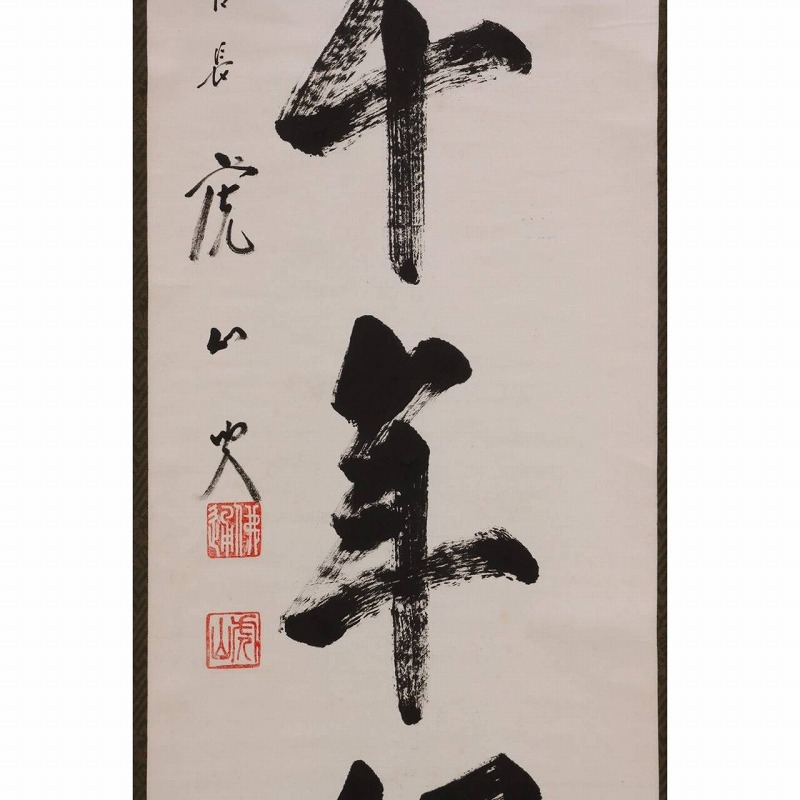 千年
長虎山叟
佛通
虎山